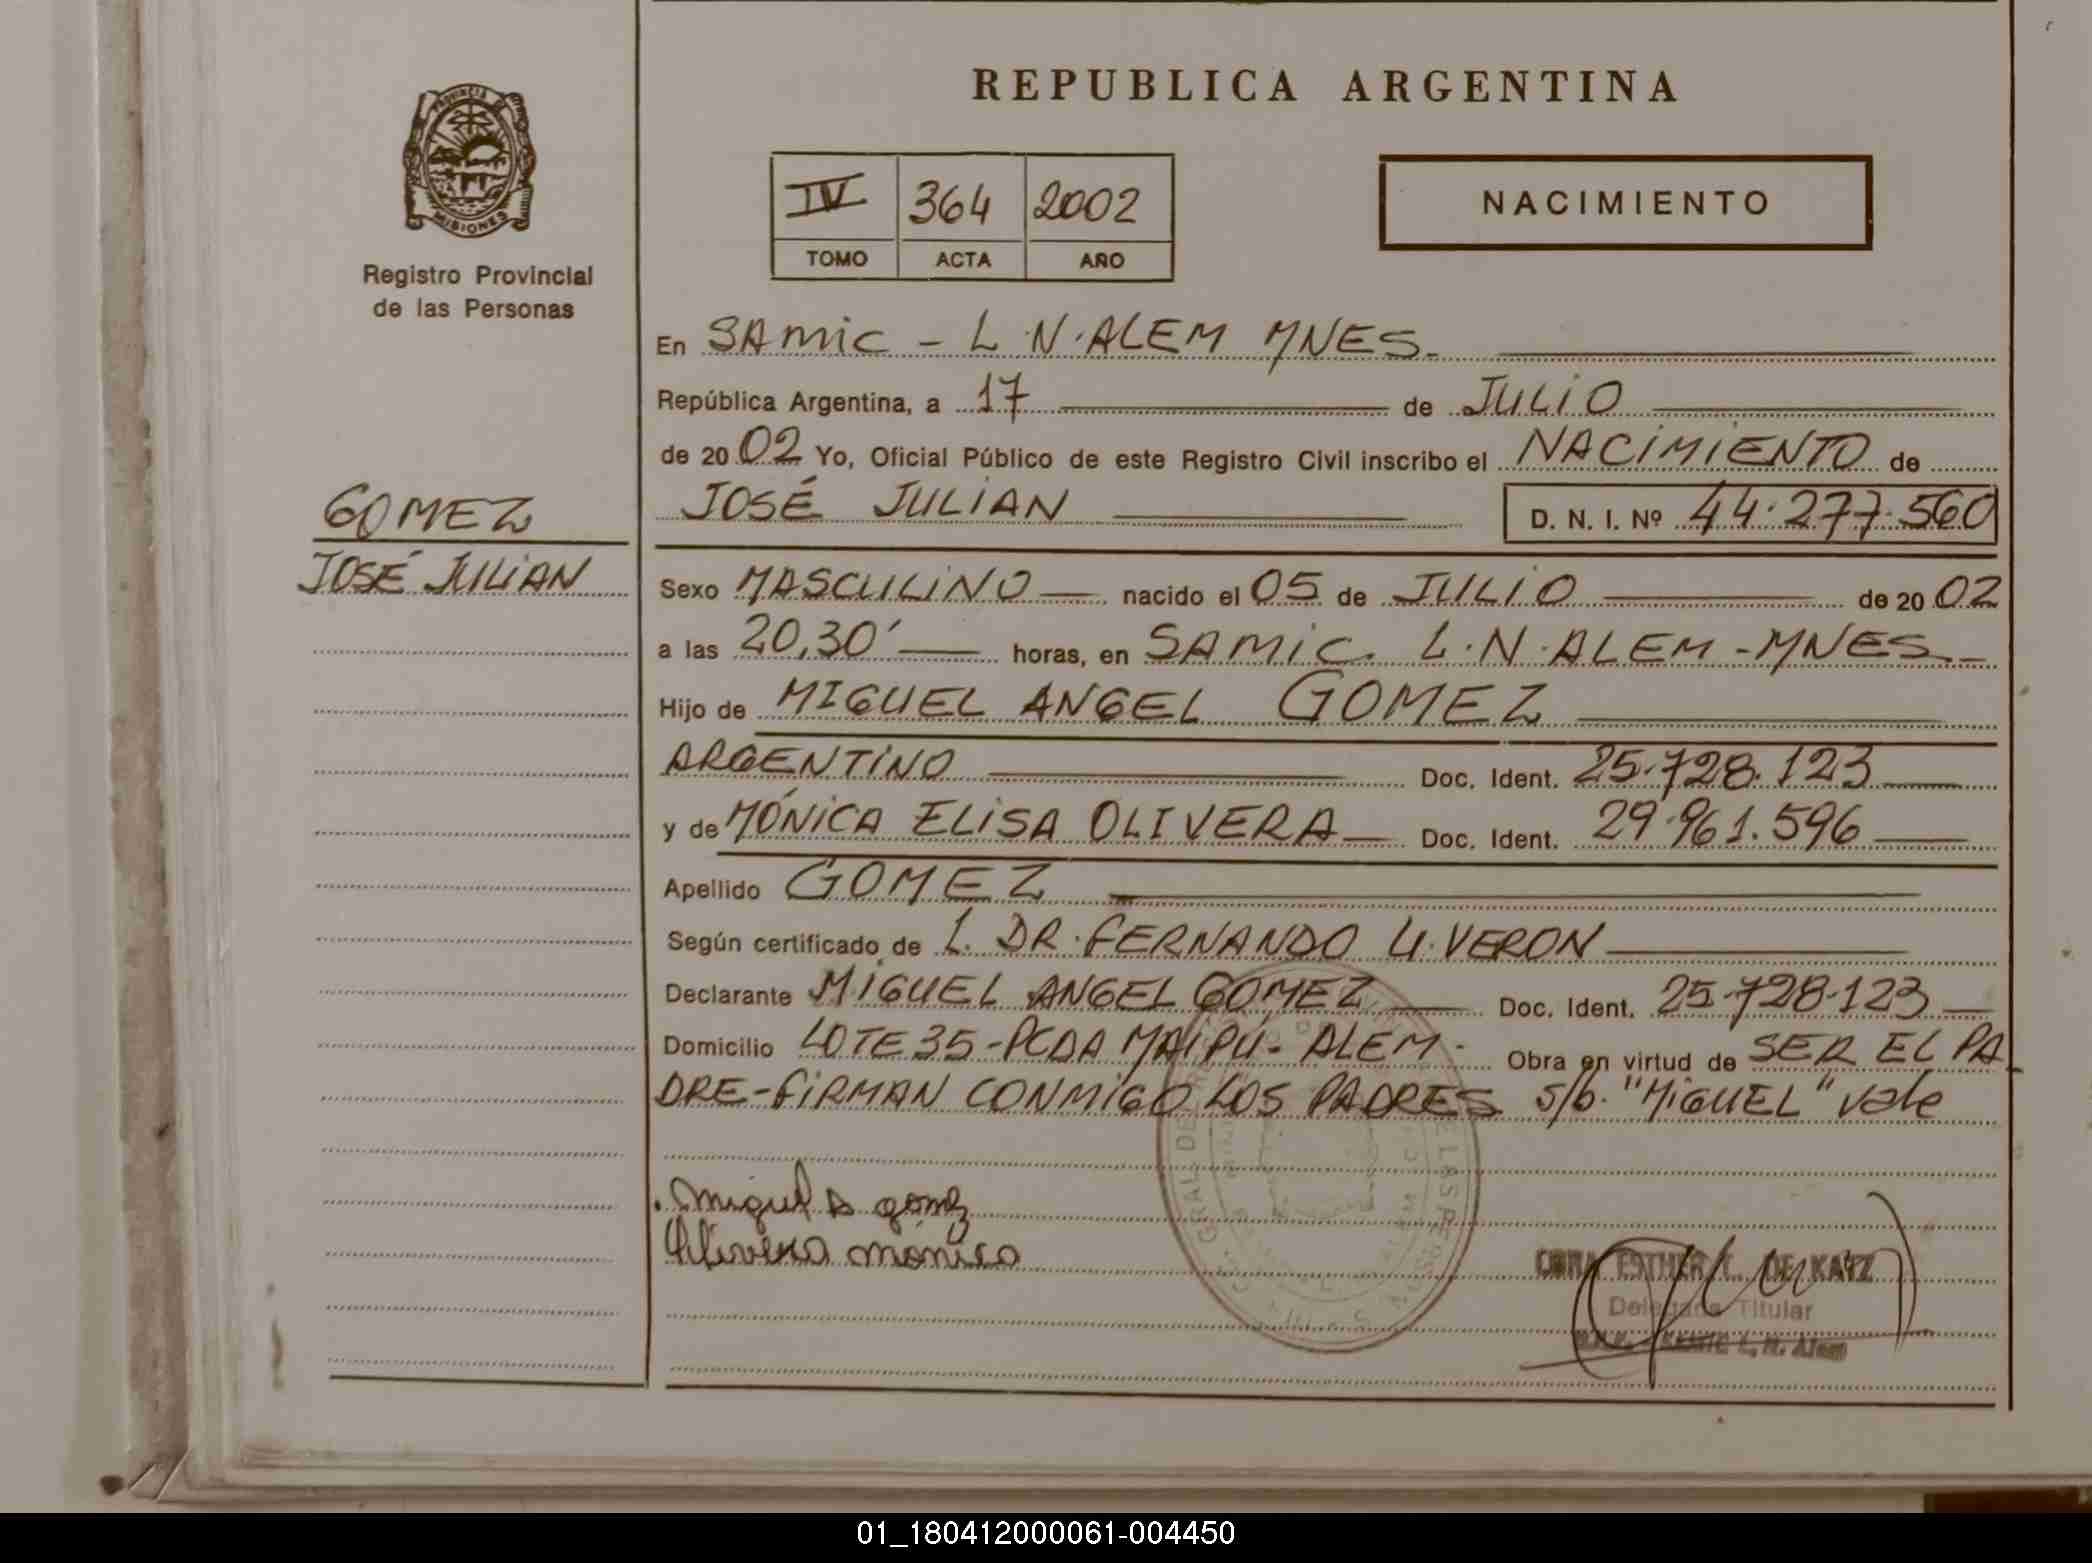 REPUBLICA ARGENTINA
PROVINCIA DE
MISIONES
Registro Provincial
de las Personas
IV 364 2002
TOMO ACTA AÑO
NACIMIENTO
En SAMIC - L.N.ALEM MNES.
República Argentina, a 17 de JULIO
de 2002 Yo, Oficial Público de este Registro Civil inscribo el NACIMIENTO de
JOSÉ JULIAN D. N. I. Nº 44.277.560
GOMEZ
JOSÉ JULIAN
Sexo MASCULINO nacido el 05 de JULIO de 2002
a las 20,30' horas, en SAMIC. L.N.ALEM-MNES-
Hijo de MIGUEL ANGEL GOMEZ
ARGENTINO Doc. Ident. 25.728.123
y de MÓNICA ELISA OLIVERA Doc. Ident. 29.961.596
Apellido GOMEZ
Según certificado de L. DR. FERNANDO U. VERON
Declarante MIGUEL ANGEL GOMEZ Doc. Ident. 25.728.123
Domicilio LOTE 35-PCDA MAIPÚ- ALEM- Obra en virtud de SER EL PA
DRE-FIRMAN CONMIGO LOS PADRES s/b. "MIGUEL" vale
Miguel A gomez
Olivera monica
ESTHER T. DE KATZ
Delegada Titular
L. N. Alem
01_180412000061-004450